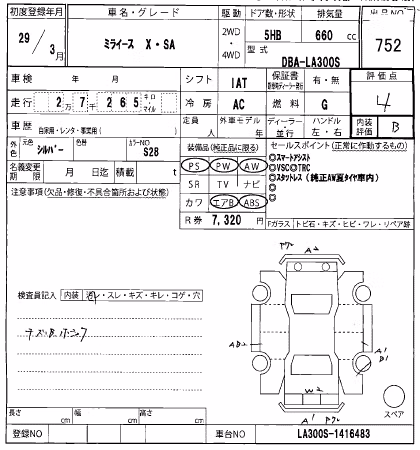 初度登録年月 車名・グレード 駆動 ドア数・形状 排気量 出品NO
29/3月 ミライース X・SA 2WD・4WD 5HB 660 cc 752
型式 DBA-LA300S
車検 年 月 シフト IAT 保証書 有・無 評価点
走行 2万7千265 キロ・マイル 冷房 AC 燃料 G 4
車歴 自家用・レンタ・事業用( ) 定員 人 外車モデル 年 ディーラー・並行 ハンドル 左・右 内装評価 B
外色 元色 シルバー 色替 カラーNO S28
名義変更期限 月 日迄 積載 t
装備品(純正品に限る)
PS PW AW
SR TV ナビ
カワ エアB ABS
R券 7,320 円
セールスポイント(正常に作動するもの)
◎スマートアシスト
◎VSC◎TRC
◎スタットレス(純正AW夏タイヤ車内)
◎
◎
Fガラス トビ石・キズ・ヒビ・ワレ・リペア跡
注意事項(欠品・修復・不具合箇所および状態)
検査員記入 内装 汚レ・スレ・キズ・キレ・コゲ・穴
A2
A1
B1
W2
A1
スペア
長さ cm 幅 cm 高さ cm
登録NO 車台NO LA300S-1416483